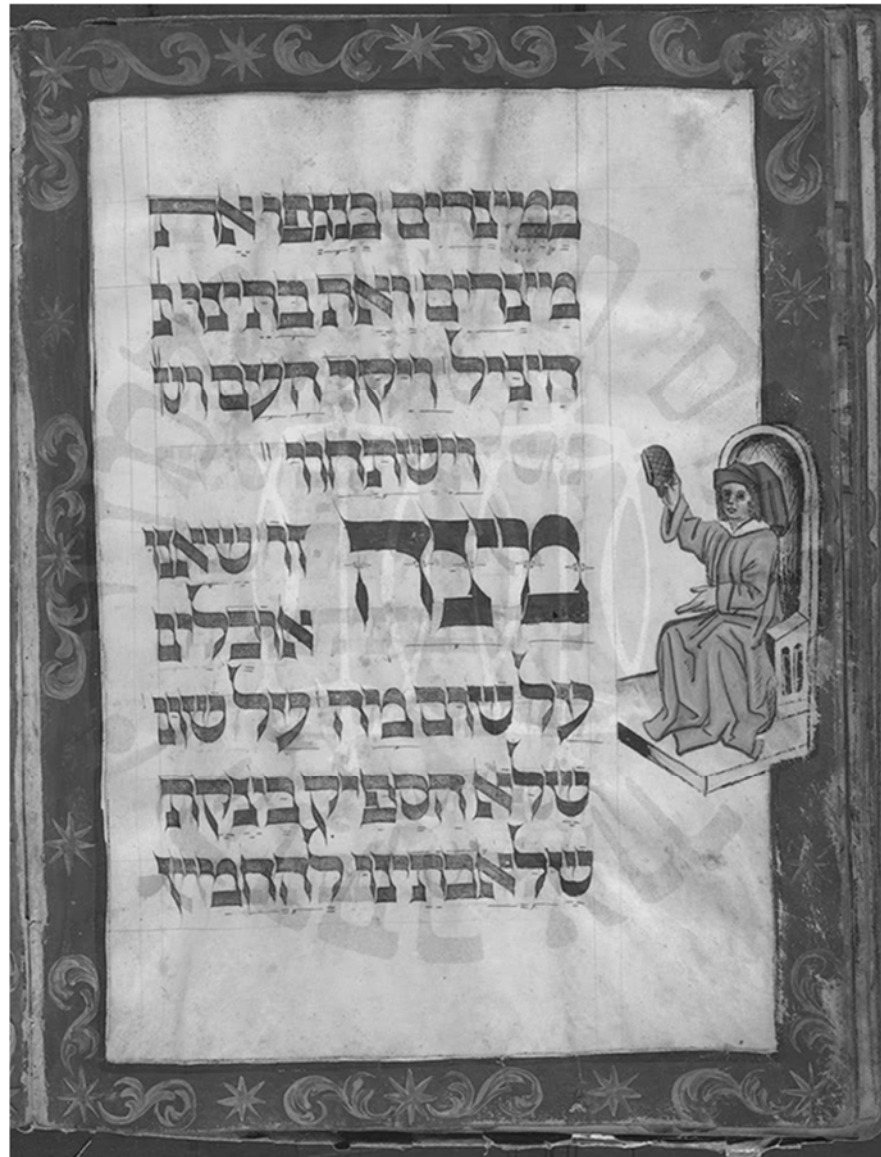 במצרים בנגפו את
מצרים ואת בתינו
הציל ויקד העם וש
וישתחוו
מצה זו שאנו
אוכלים
על שום מה על שום
שלא הספיק בצקת
של אבתינו להחמיץ